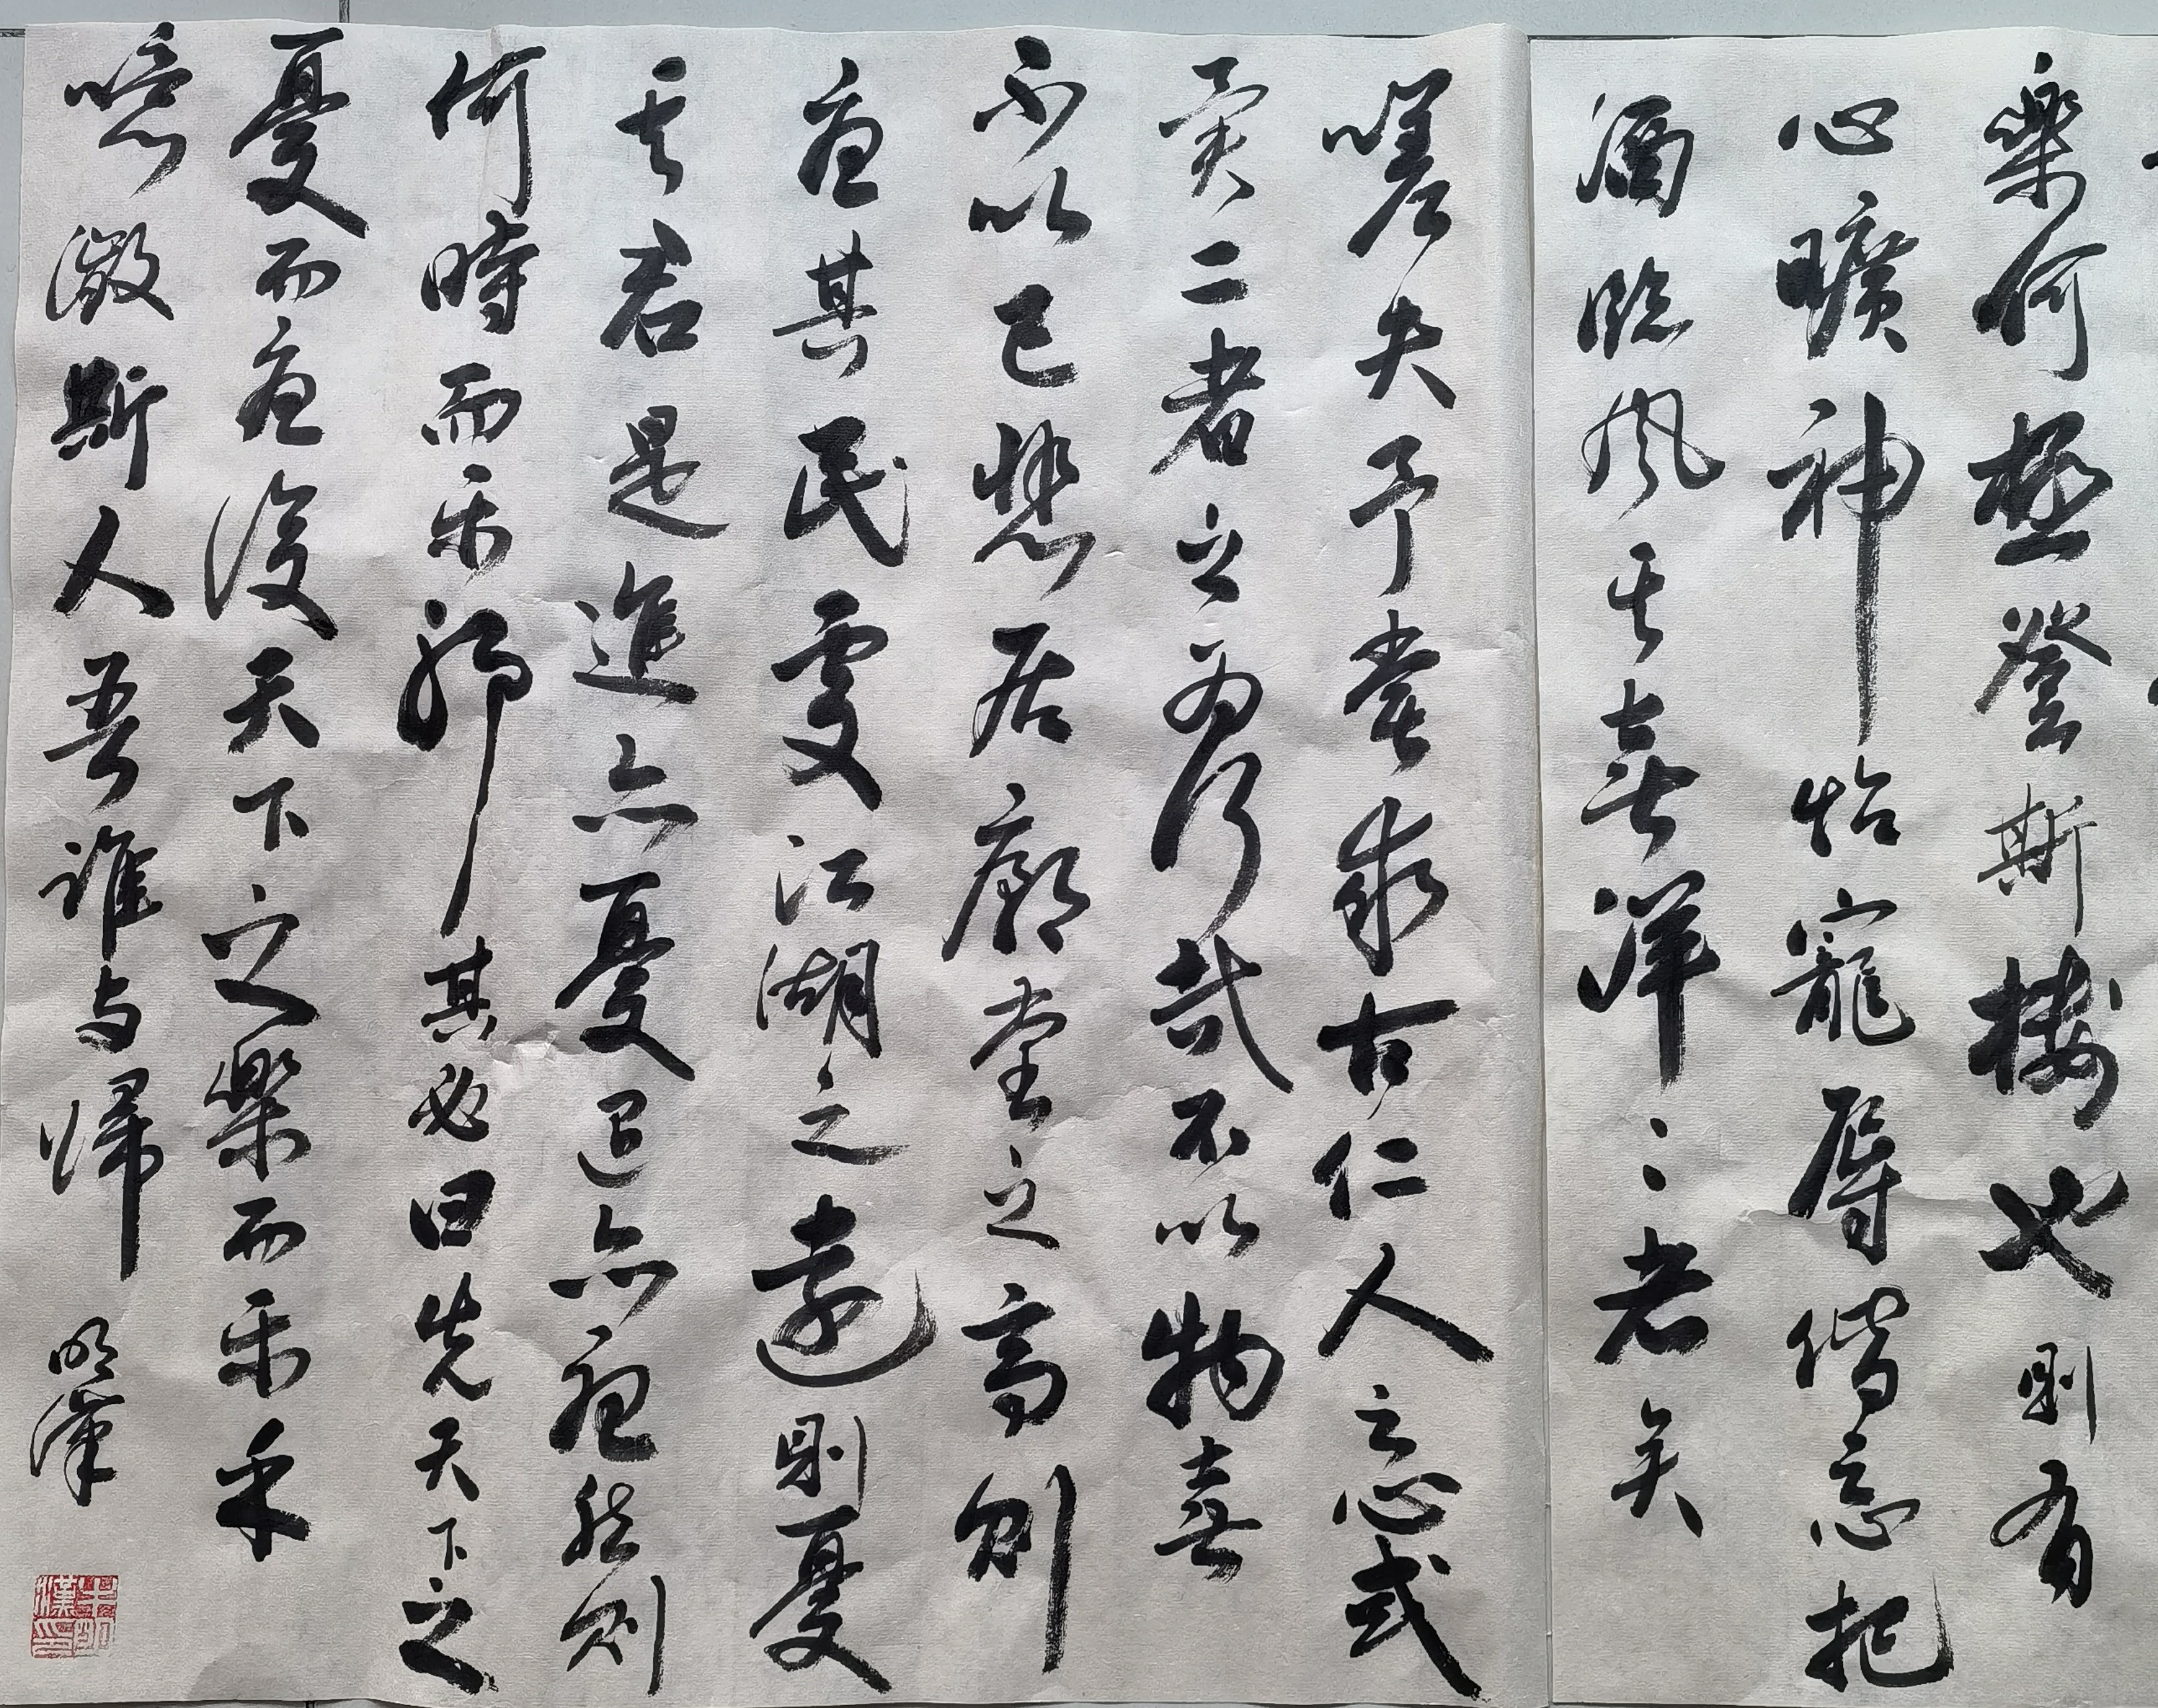 樂何極登斯樓也則有
心曠神怡寵辱偕忘把
酒臨風其喜洋〻者矣
嗟夫予嘗求古仁人之心或
異二者之為何哉不以物喜
不以己悲居廟堂之高則
憂其民處江湖之遠則憂
其君是進亦憂退亦憂然則
何時而乐耶其必曰先天下之
憂而憂後天下之樂而乐乎
噫微斯人吾誰与歸
明漢